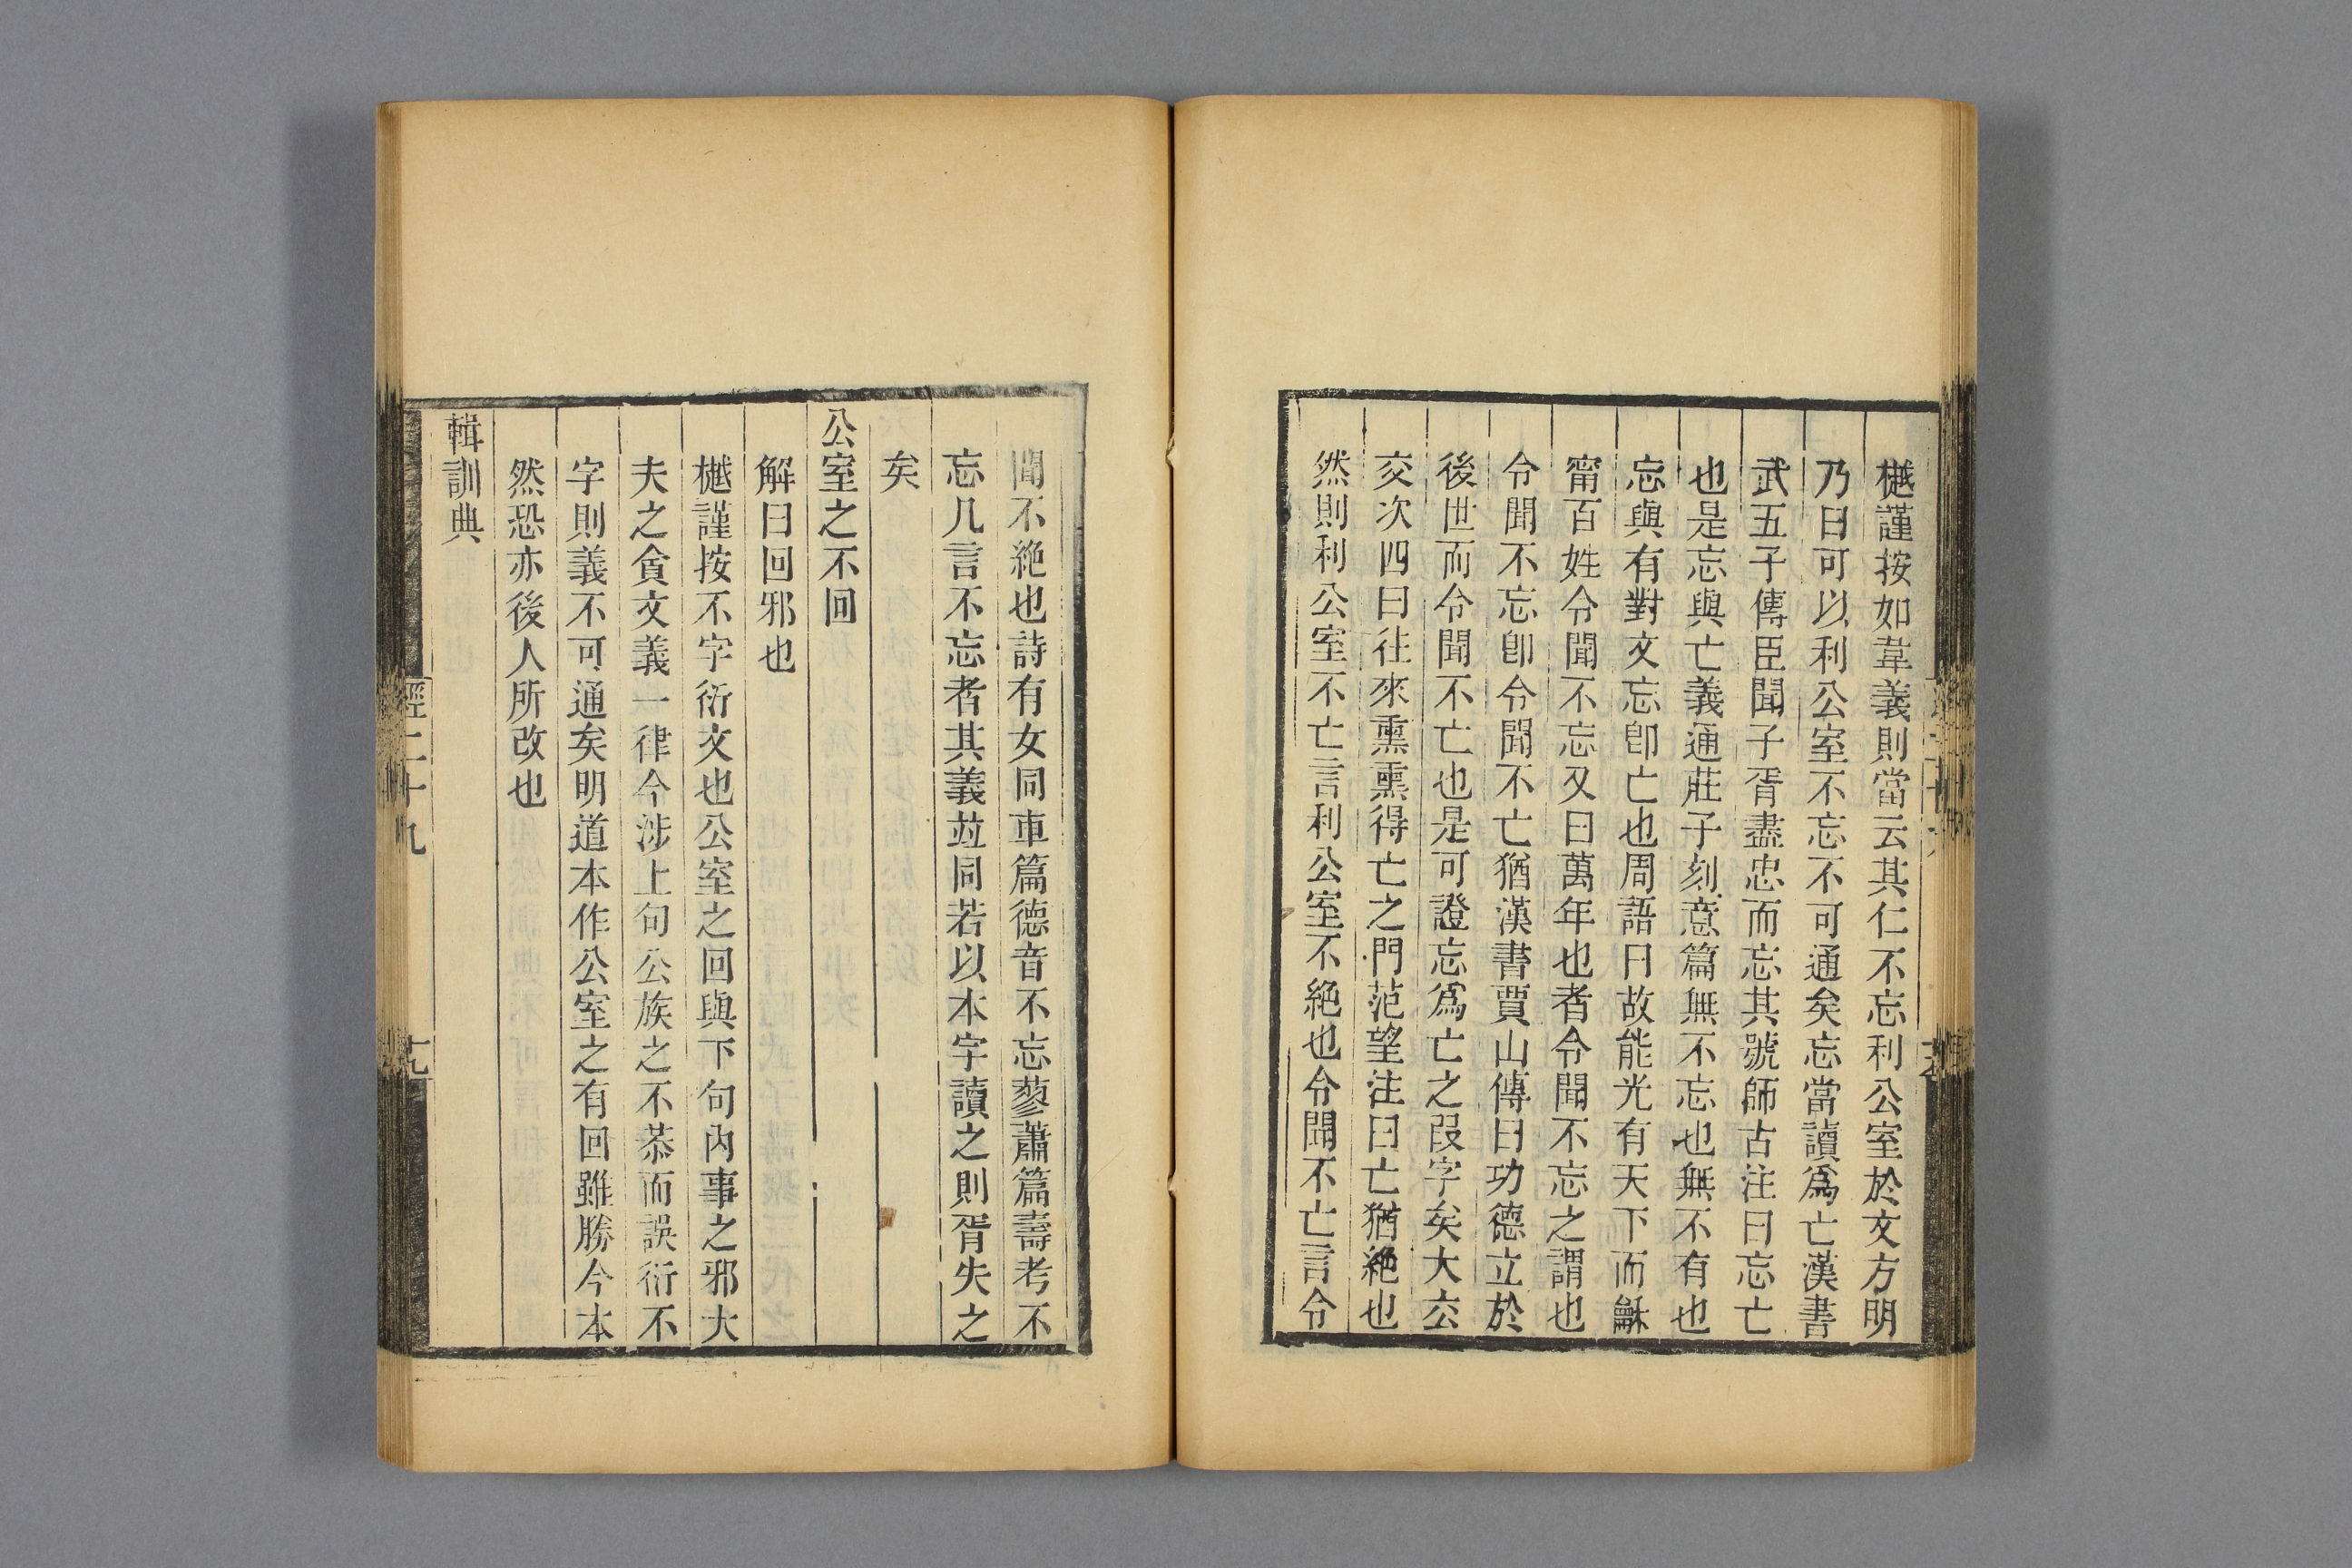 樾謹按如韋義則當云其仁不忘利公室於文方明
乃曰可以利公室不忘不可通矣忘當讀爲亡漢書
武五子傳臣聞子胥盡忠而忘其號師古注曰忘亡
也是忘與亡義通莊子刻意篇無不忘也無不有也
忘與有對文忘卽亡也周語曰故能光有天下而龢
甯百姓令聞不忘又曰萬年也者令聞不忘之謂也
令聞不忘卽令聞不亡猶漢書賈山傳曰功德立於
後世而令聞不亡也是可證忘爲亡之叚字矣大玄
交次四曰往來熏熏得亡之門范望注曰亡猶絕也
然則利公室不亡言利公室不絕也令聞不亡言令
聞不絕也詩有女同車篇德音不忘蓼蕭篇壽考不
忘凡言不忘者其義竝同若以本字讀之則胥失之
矣
公室之不回
解曰回邪也
樾謹按不字衍文也公室之回與下句內事之邪大
夫之貪文義一律今涉上句公族之不恭而誤衍不
字則義不可通矣明道本作公室之有回雖勝今本
然恐亦後人所改也
輯訓典
經二十九